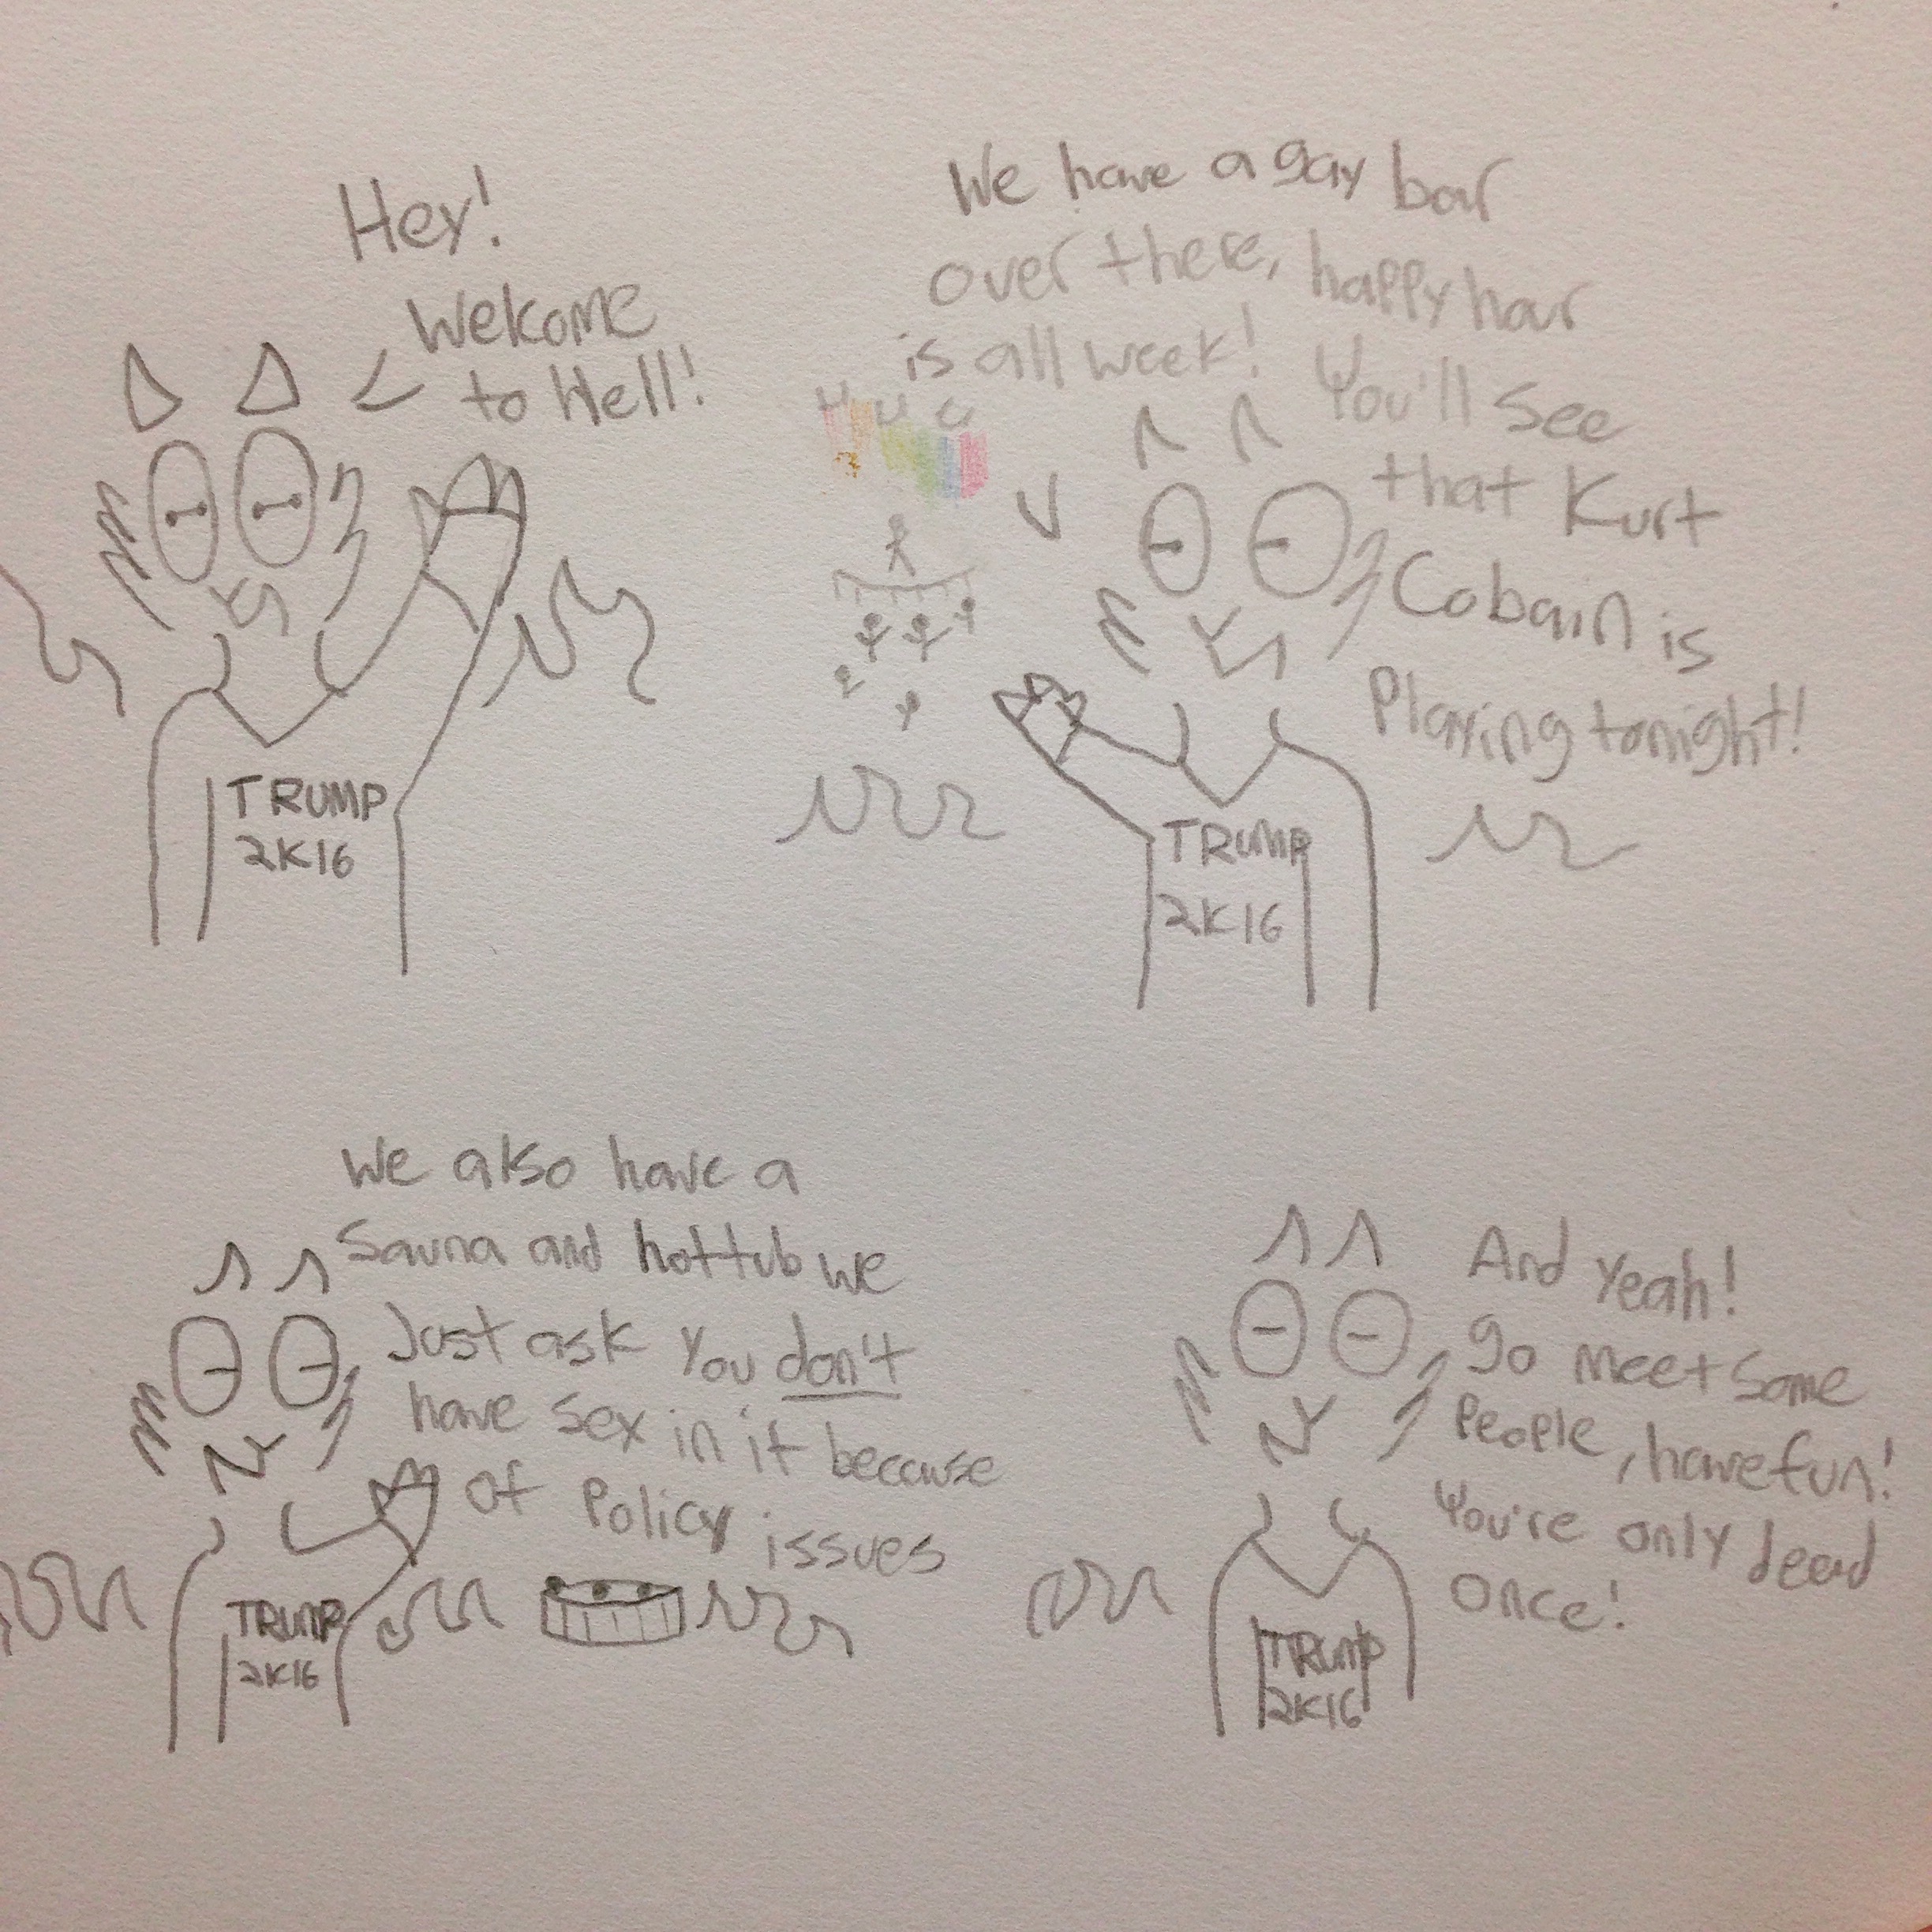 Hey!
Welcome
to Hell!
TRUMP
2K16
We have a gay bar
over there, happy hour
is all week! You'll see
that Kurt
Cobain is
Playing tonight!
TRUMP
2K16
We also have a
Sauna and hottub we
Just ask you don't
have sex in it because
of Policy issues
TRUMP
2K16
And yeah!
go meet some
People, have fun!
You're only dead
once!
TRUMP
2K16